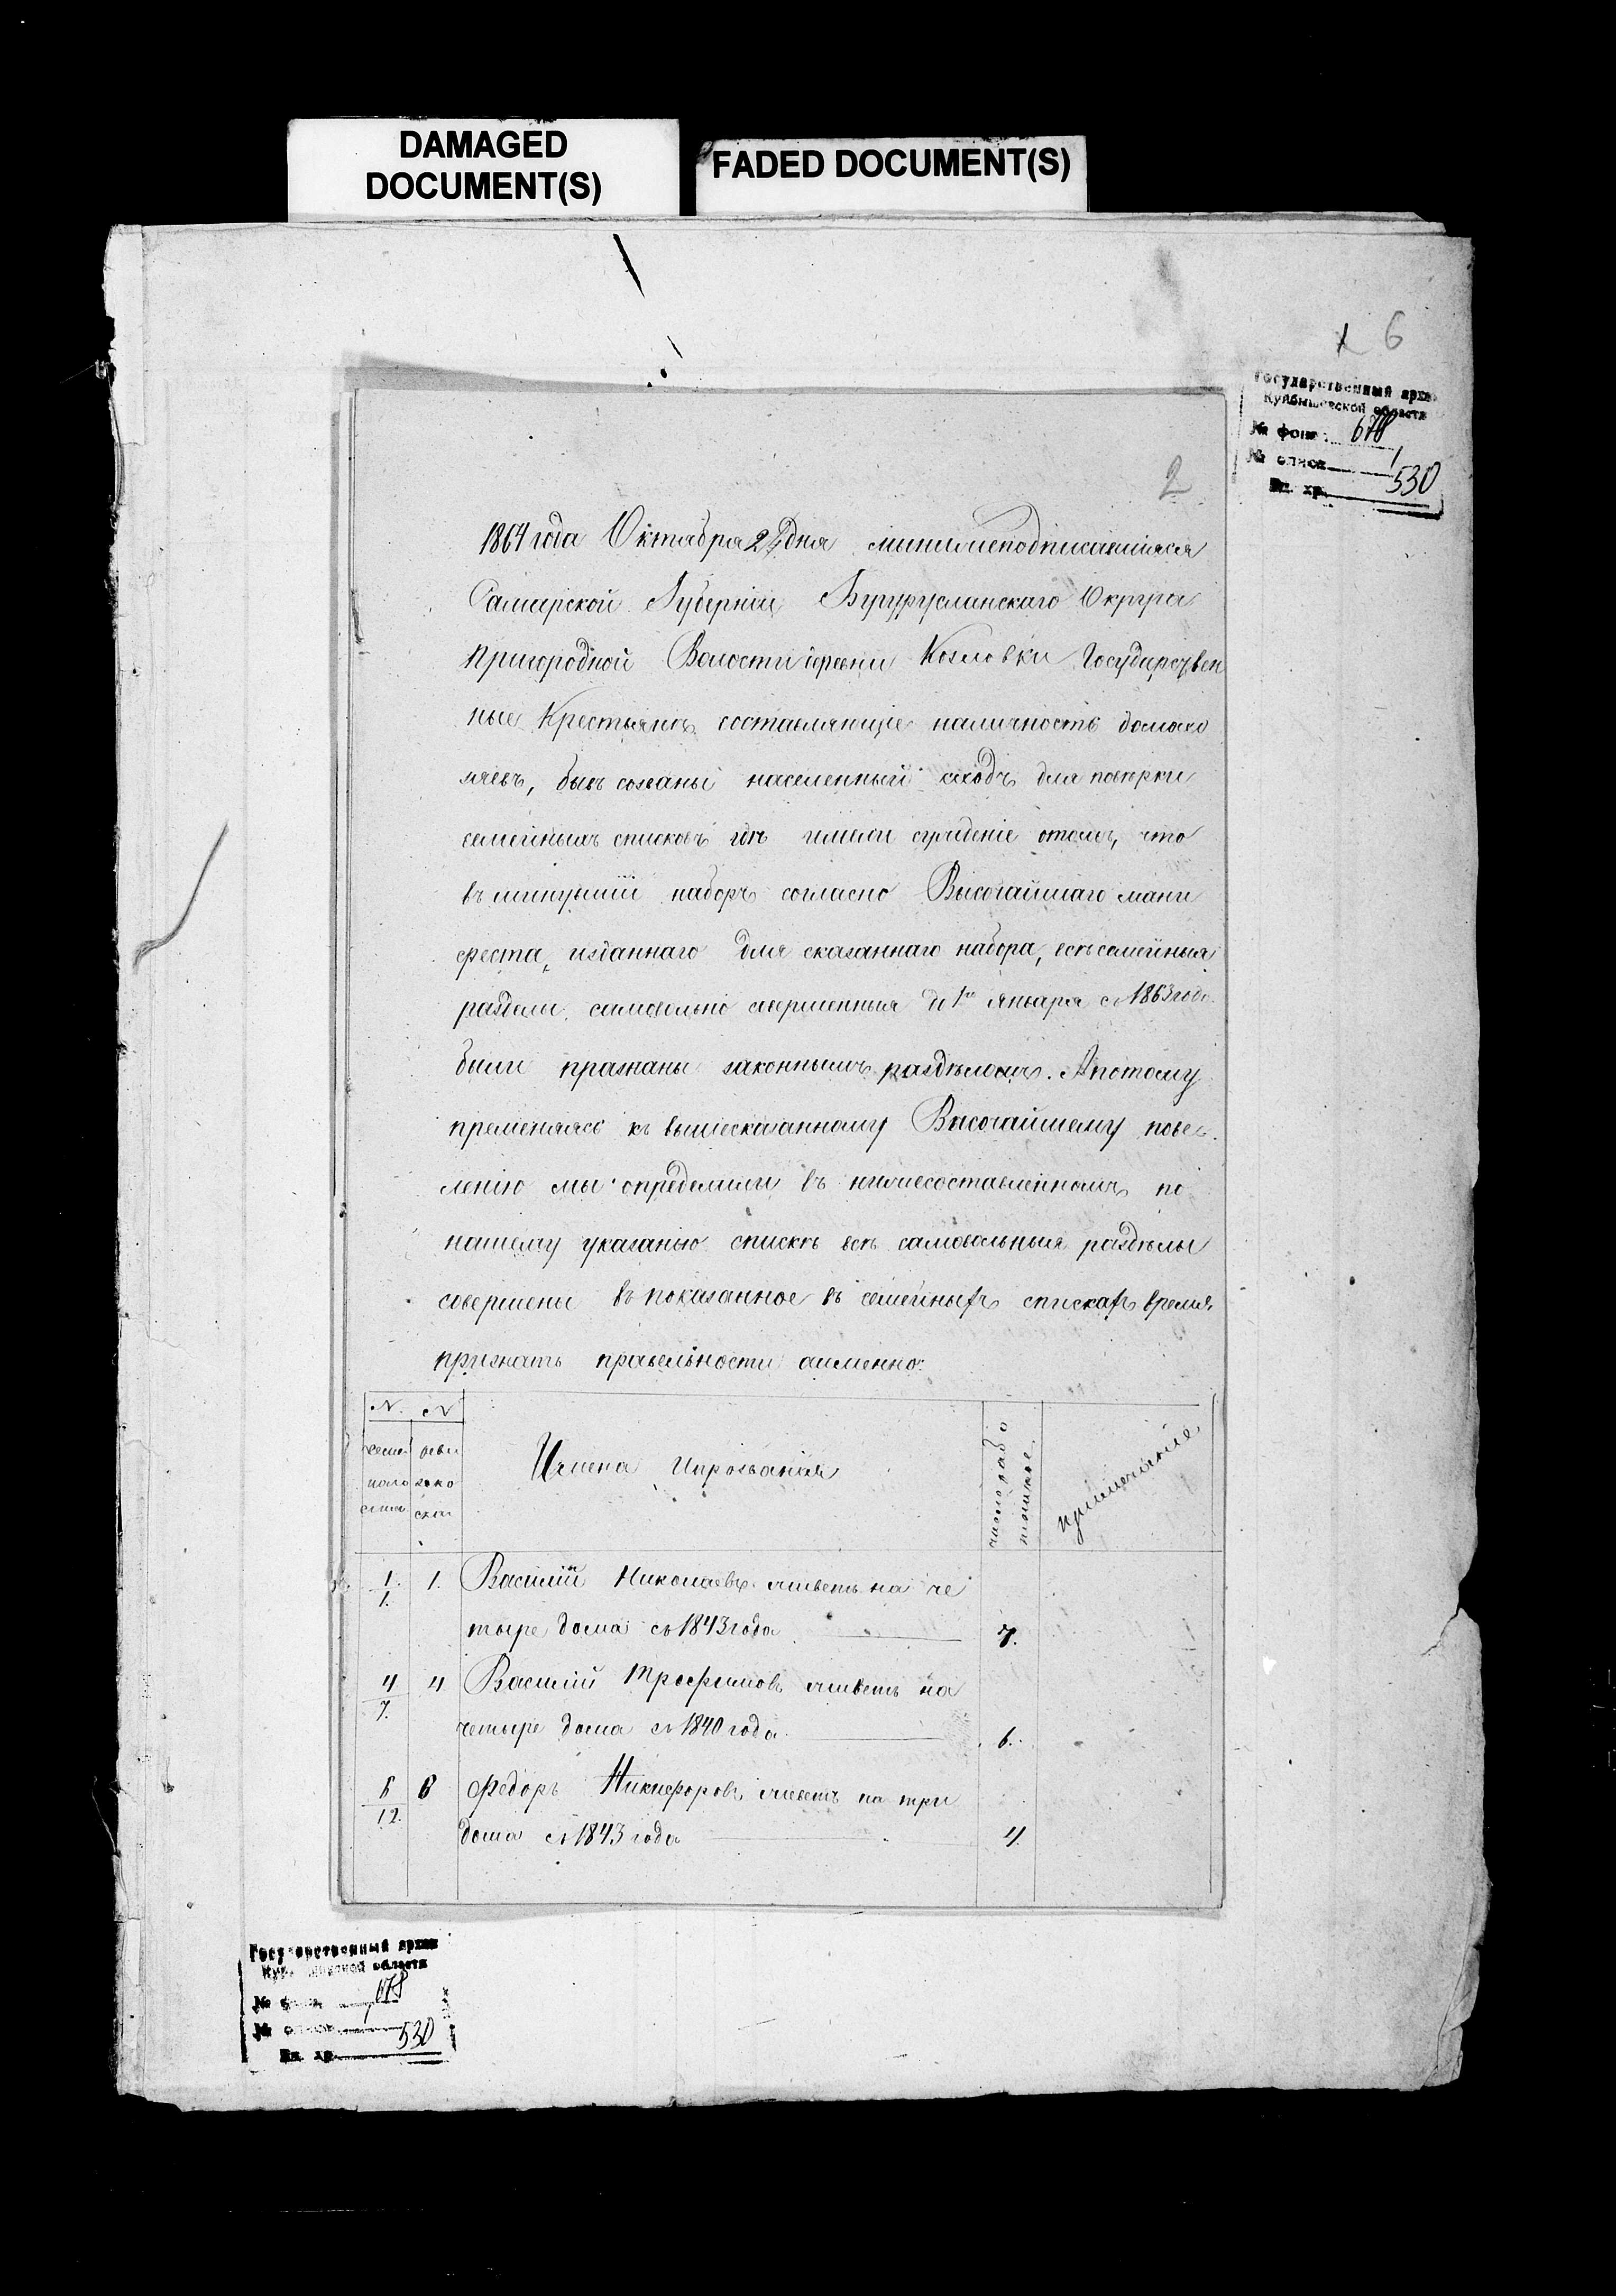 DAMAGED
DOCUMENT(S)
FADED DOCUMENT(S)
6
Государственный архив
Куйбышевской области
№ фонд 678
№ описи 1
Ед. хр. 530
2
1864 года Октября 24 дня мыниженодписавшіяся
Самарской Губерніи Бугурусланскаго Округа
Пригородной Волости Козловки Государствен
ные Крестьянъ составляющіе наличность домохо
зяевъ, бывъ созваны населенный сходъ для поверки
семейныхъ списковъ где имели сужденіе отомъ, что
въ минувшій наборъ согласно Высочайшаго мани
феста, изданнаго для сказаннаго набора, всесемейныя
раздели самовольно совершенныя до 1го января съ 1863 года
были празнаны законнымъ разделомъ. Апотому
пременяясь къ вышесказанному Высочайшему пове
лению мы определили въ нижесоставленномъ по
нашему указанію списке все самовольныя разделы
совершены въ показанное въ семейныхъ спискахъ время
признать правельности аименно:
№ №
семейнаго списка
ревизской сказки
Имена Ипрозванія
число работников
примечаніе
1/1. 1. Василій Николаевъ живетъ на че
тыре дома съ 1843 года 7.
4/7. 4 Василій Трофимовъ живетъ на
четыре дома съ 1840 года 6.
6/12. 6 Федоръ Никифоровъ живетъ на три
дома съ 1843 года 4
Государственный архив
области
№ 678
№ 1
Ед. хр. 530